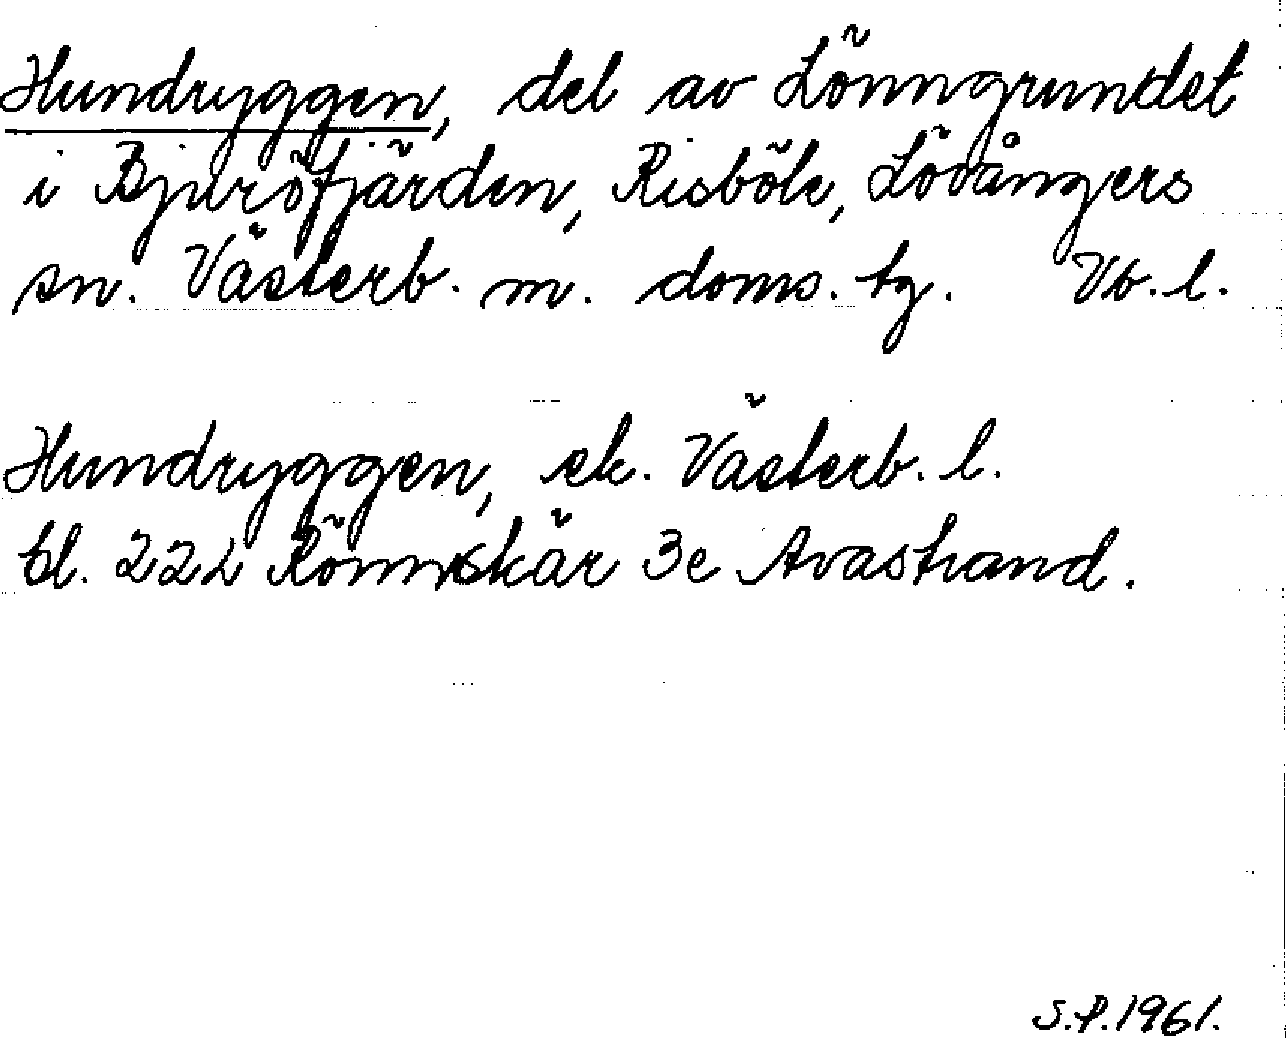 Hundryggen, del av Lönngrundet
i Bjuröfjärden, Risböle, Lövångers
sn. Västerb. m. doms. tg. Vb. l.
Hundryggen, ek. Västerb. l.
bl. 222 Rönnskär 3e Avastrand.
S.P. 1961.